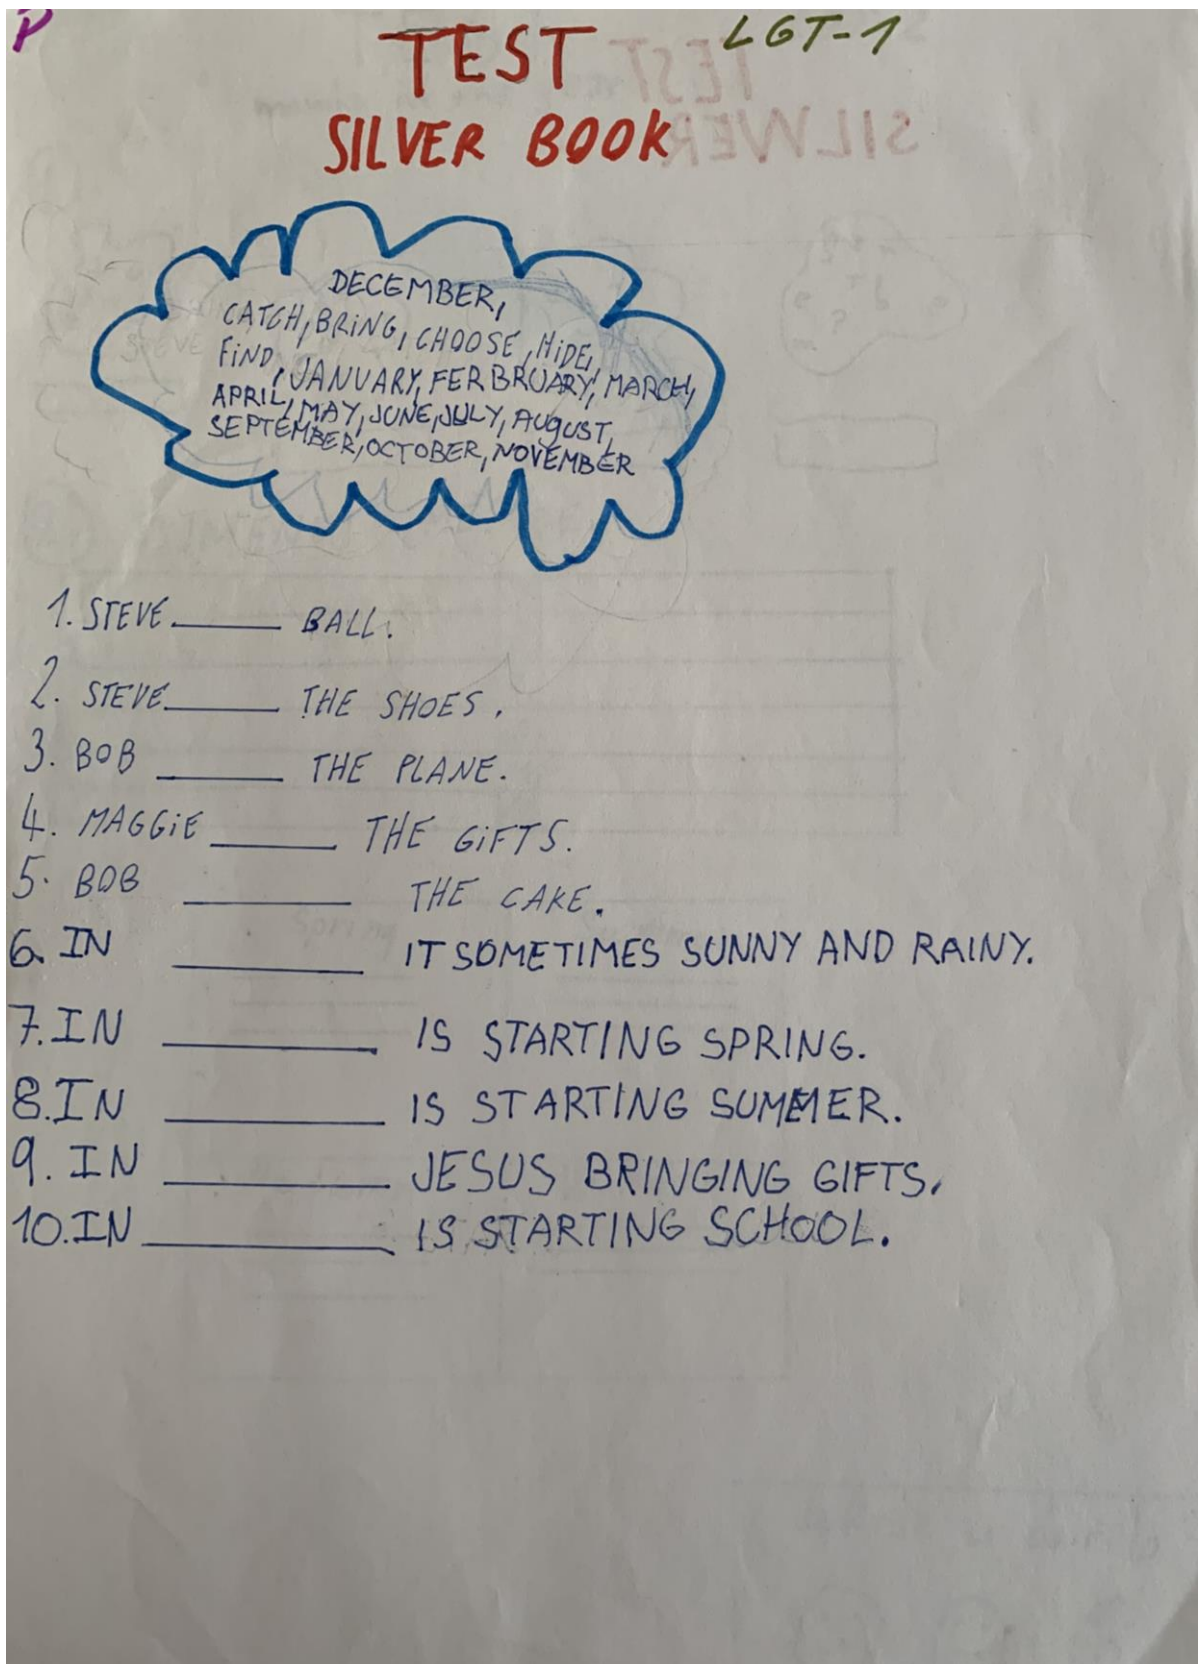 P
LGT-1
TEST
SILVER BOOK
DECEMBER,
CATCH, BRiNG, CHOOSE, HiDE,
FiND, JANUARY, FERBRUARY, MARCH,
APRIL, MAY, JUNE, JULY, AUGUST,
SEPTEMBER, OCTOBER, NOVEMBER
1. STEVE ______ BALL.
2. STEVE ______ THE SHOES.
3. BOB ______ THE PLANE.
4. MAGGiE ______ THE GiFTS.
5. BOB ______ THE CAKE.
6. IN ______ IT SOMETIMES SUNNY AND RAINY.
7. IN ______ IS STARTING SPRING.
8. IN ______ IS STARTING SUMMER.
9. IN ______ JESUS BRINGING GIFTS.
10. IN ______ IS STARTING SCHOOL.